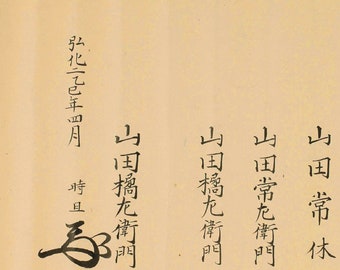 山田常休
山田常左衛門
山田橘左衛門
山田橘左衛門
弘化二乙巳年四月
時旦